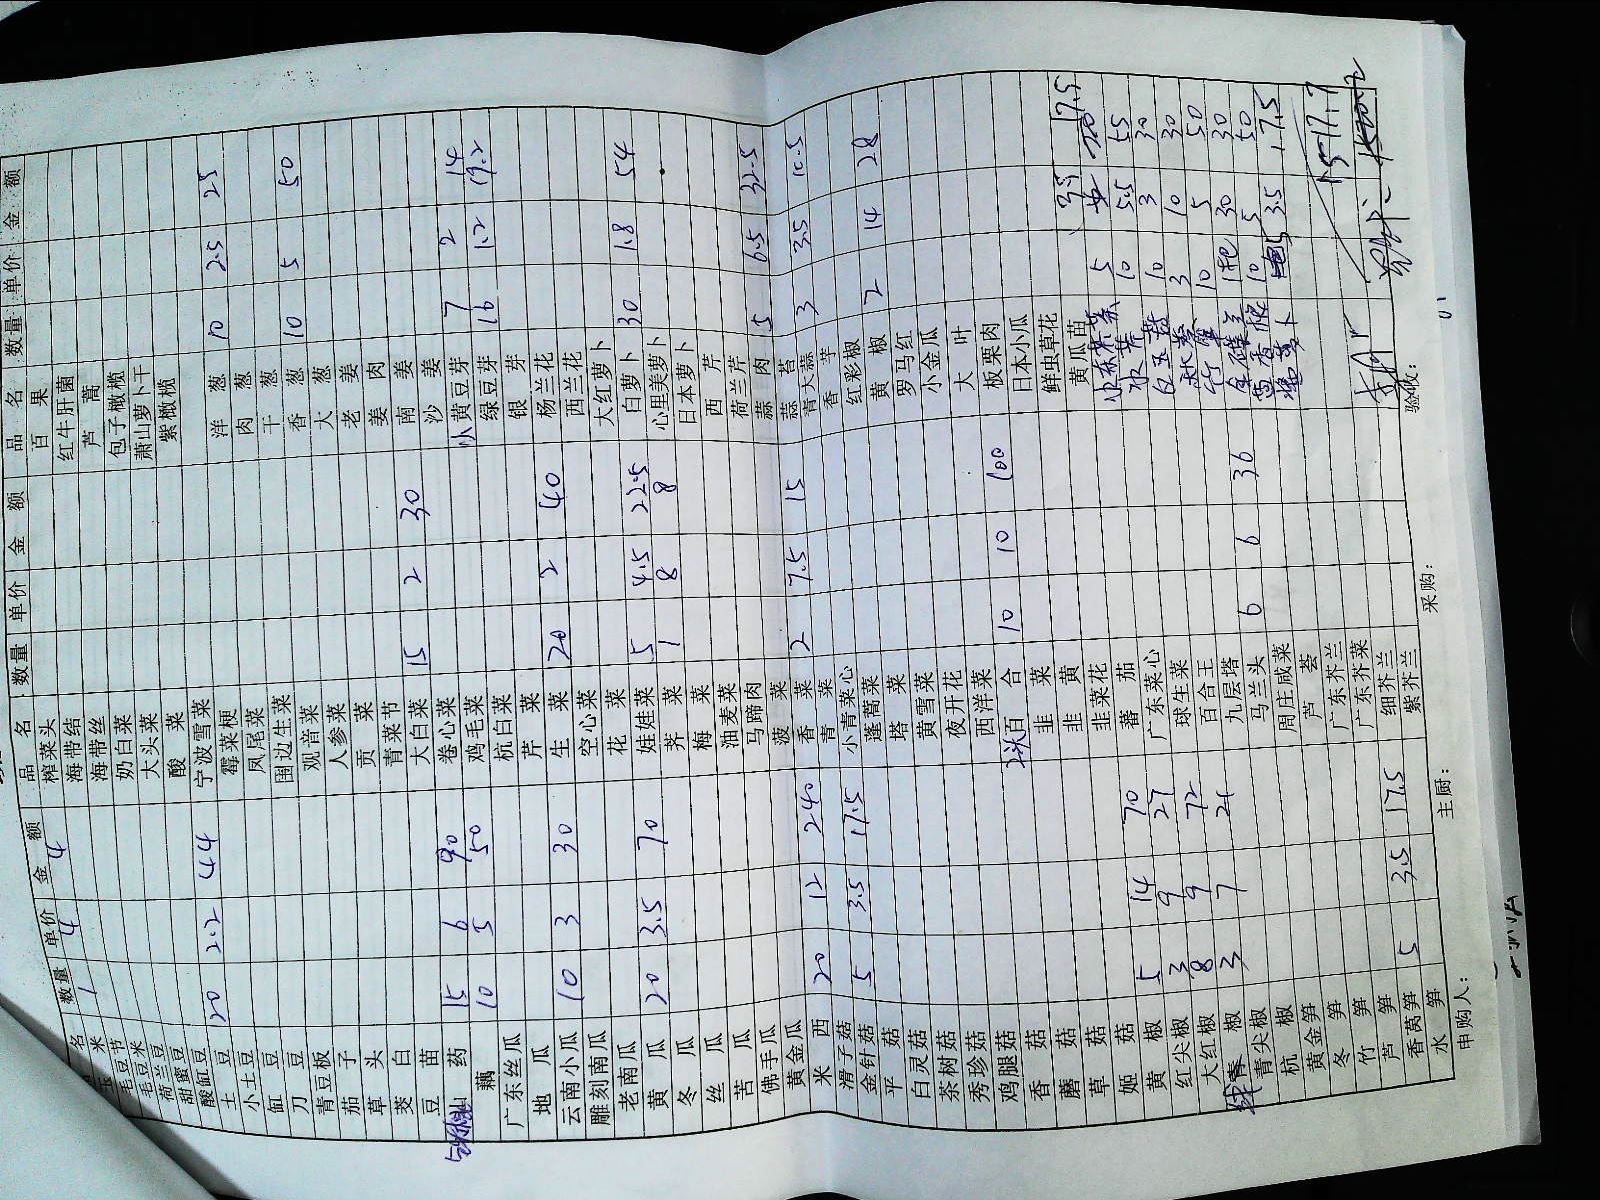 品名 数量 单价 金额
玉米 1 4 4
毛豆节
毛豆米
荷兰豆
甜蜜豆
酸缸豆
土豆 20 2.2 44
小土豆
缸豆
刀豆
青豆板
茄子
草头
茭白
豆苗
山药 15 6 90
藕 10 5 50
广东丝瓜
地瓜
云南小瓜 10 3 30
雕刻南瓜
老南瓜
黄瓜 20 3.5 70
冬瓜
丝瓜
苦瓜
佛手瓜
黄金瓜
米西 20 12 240
滑子菇
金针菇 5 3.5 17.5
平菇
白灵菇
茶树菇
秀珍菇
鸡腿菇
香菇
蘑菇
草菇
姬菇
黄椒 5 14 70
红尖椒 3 9 27
大红椒 8 9 72
青椒 3 7 21
青尖椒
杭椒
黄金笋
冬笋
竹笋
芦笋
香莴笋 5 3.5 17.5
水笋
品名 数量 单价 金额
榨菜头
海带结
海带丝
奶白菜
大头菜
酸菜
宁波雪菜
霉菜梗
凤尾菜
围边生菜
观音菜
人参菜
贡菜
青菜节
大白菜 15 2 30
卷心菜
鸡毛菜
杭白菜
芹菜
生菜 20 2 40
空心菜
花菜
娃娃菜 5 4.5 22.5
荠菜 1 8 8
梅菜
油麦菜
马蹄肉
菠菜
香菜 2 7.5 15
青菜
小青菜心
蓬蒿菜
塔菜
黄雪菜
夜开花
西洋菜
2头百合 10 10 100
韭菜
韭黄
韭菜花
蕃茄
广东菜心
球生菜
百合王
九层塔
马兰头 6 6 36
周庄咸菜
芦荟
广东芥兰
广东芥菜
细芥兰
紫芥兰
品名 数量 单价 金额
百果
红牛肝菌
芦蒿
包子橄榄
萧山萝卜干
紫橄榄
洋葱 10 2.5 25
肉葱
干葱
香葱 10 5 50
大葱
老姜
姜肉
南姜
沙姜
小黄豆芽 7 2 14
绿豆芽 16 1.2 19.2
银芽
杨兰花
西兰花
大红萝卜
白萝卜 30 1.8 54
心里美萝卜
日本萝卜
西芹
荷兰芹
蒜肉 5 6.5 32.5
蒜苔
青大蒜 3 3.5 10.5
香芋
红彩椒
黄椒 2 14 28
罗马红
小金瓜
大叶
板栗肉
日本小瓜
鲜虫草花
黄瓜苗 3.5 17.5
5
10 5.5 55
10 3 30
3 10 30
10 5 50
1把 30 30
10 5 50
5 3.5 17.5
1517.7
申购人:
主厨:
采购:
验收: